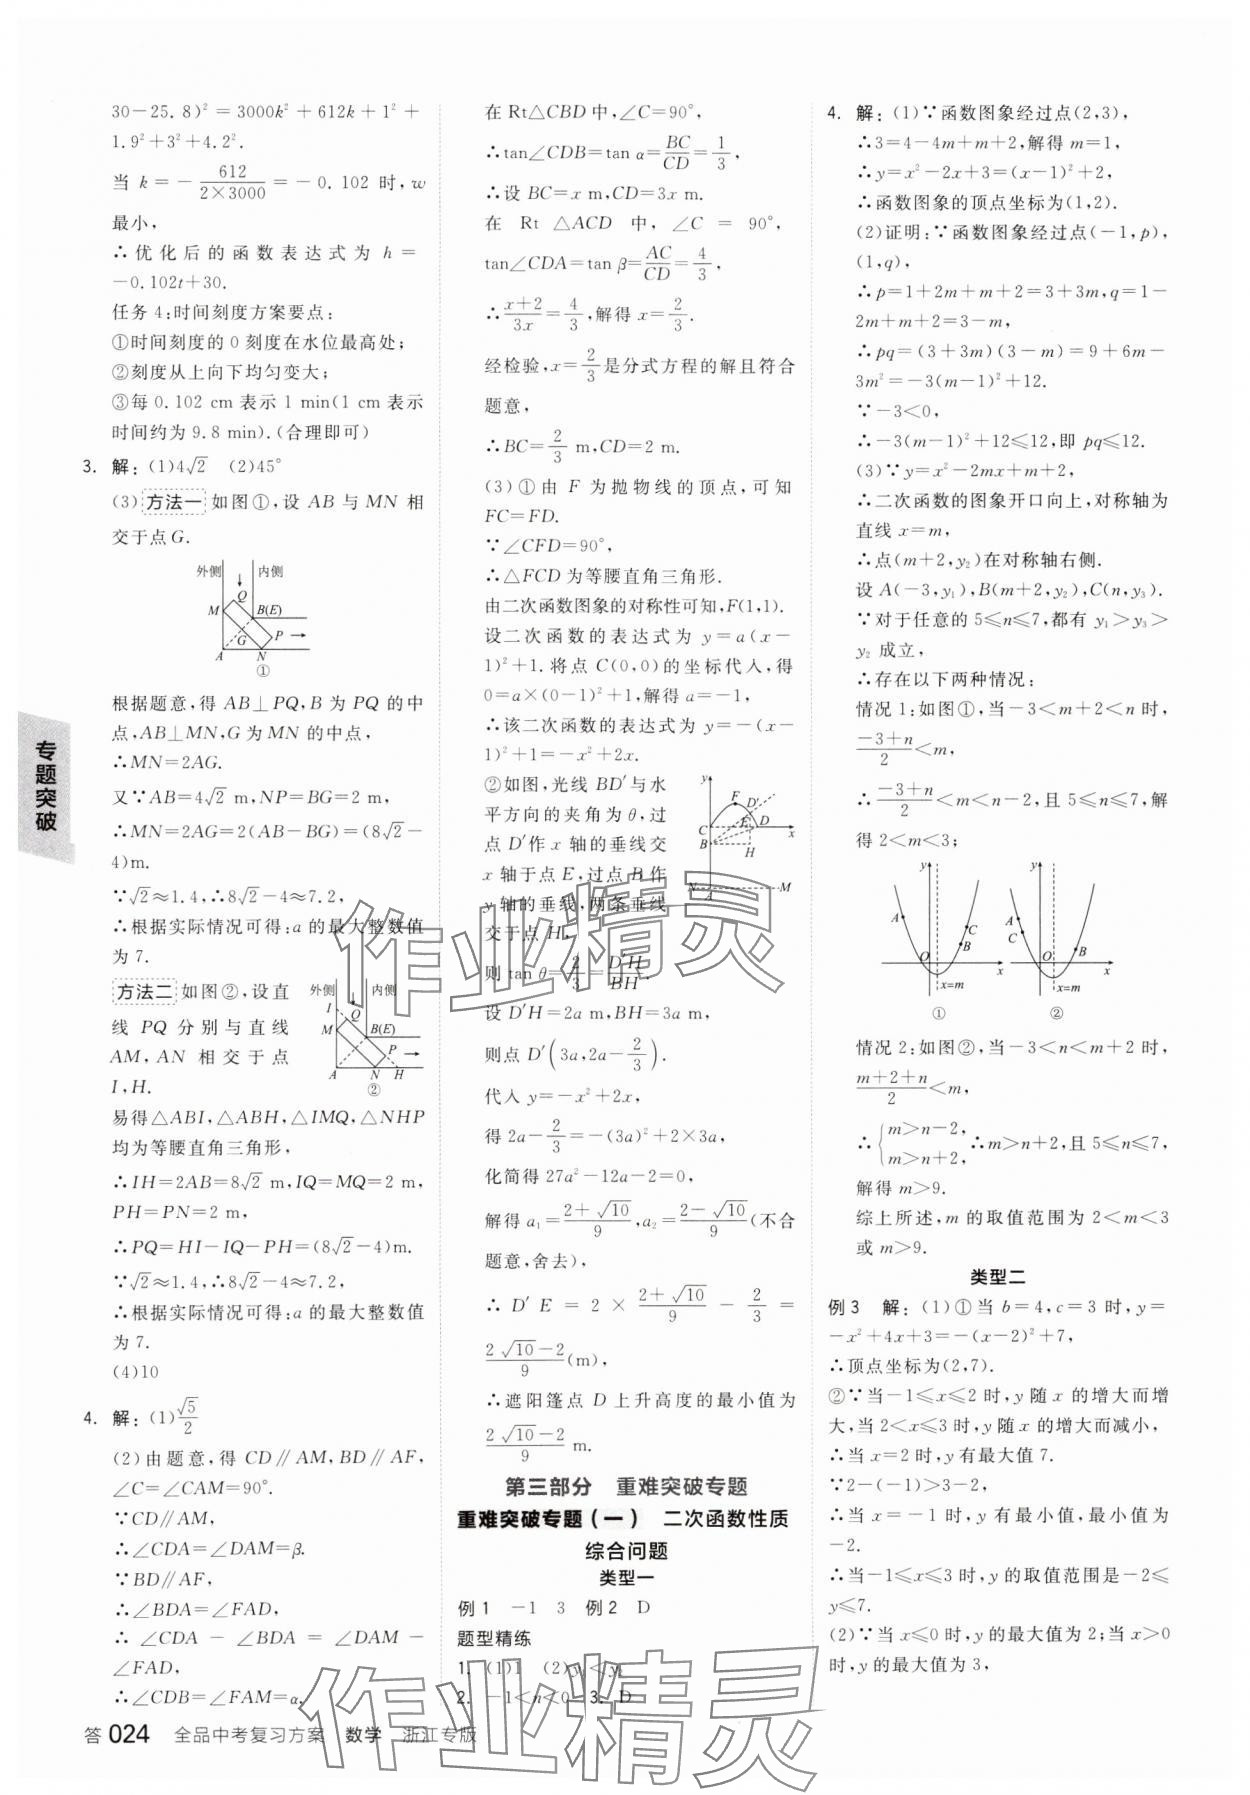 30-25.8)²=3000k²+612k+1²+
1.9²+3²+4.2².
当 k=-612/(2×3000)=-0.102 时,w
最小,
∴优化后的函数表达式为 h=
-0.102t+30.
任务 4:时间刻度方案要点:
①时间刻度的 0 刻度在水位最高处;
②刻度从上向下均匀变大;
③每 0.102 cm 表示 1 min(1 cm 表示
时间约为 9.8 min).(合理即可)
3. 解:(1)4√2 (2)45°
(3) 方法一 如图①,设 AB 与 MN 相
交于点 G.
外侧 内侧
M Q B(E)
G P
A N
①
根据题意,得 AB⊥PQ,B 为 PQ 的中
点,AB⊥MN,G 为 MN 的中点,
∴MN=2AG.
又∵AB=4√2 m,NP=BG=2 m,
∴MN=2AG=2(AB-BG)=(8√2-
4)m.
∵√2≈1.4,∴8√2-4≈7.2,
∴根据实际情况可得:a 的最大整数值
为 7.
方法二 如图②,设直
线 PQ 分别与直线
AM,AN 相交于点
I,H.
外侧 内侧
I Q
M B(E)
P
A N H
②
易得△ABI,△ABH,△IMQ,△NHP
均为等腰直角三角形,
∴IH=2AB=8√2 m,IQ=MQ=2 m,
PH=PN=2 m,
∴PQ=HI-IQ-PH=(8√2-4)m.
∵√2≈1.4,∴8√2-4≈7.2,
∴根据实际情况可得:a 的最大整数值
为 7.
(4)10
4. 解:(1)√5/2
(2)由题意,得 CD∥AM,BD∥AF,
∠C=∠CAM=90°.
∵CD∥AM,
∴∠CDA=∠DAM=β.
∵BD∥AF,
∴∠BDA=∠FAD,
∴∠CDA-∠BDA=∠DAM-
∠FAD,
∴∠CDB=∠FAM=α.
在 Rt△CBD 中,∠C=90°,
∴tan∠CDB=tan α=BC/CD=1/3,
∴设 BC=x m,CD=3x m.
在 Rt△ACD 中,∠C=90°,
tan∠CDA=tan β=AC/CD=4/3,
∴(x+2)/3x=4/3,解得 x=2/3.
经检验,x=2/3是分式方程的解且符合
题意,
∴BC=2/3 m,CD=2 m.
(3)①由 F 为抛物线的顶点,可知
FC=FD.
∵∠CFD=90°,
∴△FCD 为等腰直角三角形.
由二次函数图象的对称性可知,F(1,1).
设二次函数的表达式为 y=a(x-
1)²+1.将点 C(0,0)的坐标代入,得
0=a×(0-1)²+1,解得 a=-1,
∴该二次函数的表达式为 y=-(x-
1)²+1=-x²+2x.
②如图,光线 BD′与水
平方向的夹角为 θ,过
点 D′作 x 轴的垂线交
x 轴于点 E,过点 B 作
y 轴的垂线,两条垂线
交于点 H,
y
F D′
C E D x
B H
N M
A
则 tan θ=2/3=D′H/BH.
设 D′H=2a m,BH=3a m,
则点 D′(3a,2a-2/3).
代入 y=-x²+2x,
得 2a-2/3=-(3a)²+2×3a,
化简得 27a²-12a-2=0,
解得 a₁=(2+√10)/9,a₂=(2-√10)/9(不合
题意,舍去),
∴D′E=2×(2+√10)/9-2/3=
(2√10-2)/9(m),
∴遮阳篷点 D 上升高度的最小值为
(2√10-2)/9 m.
第三部分 重难突破专题
重难突破专题(一) 二次函数性质
综合问题
类型一
例 1 -1 3 例 2 D
题型精练
1. (1)1 (2)y₁<y₂
2. -1<n<0 3. D
4. 解:(1)∵函数图象经过点(2,3),
∴3=4-4m+m+2,解得 m=1,
∴y=x²-2x+3=(x-1)²+2,
∴函数图象的顶点坐标为(1,2).
(2)证明:∵函数图象经过点(-1,p),
(1,q),
∴p=1+2m+m+2=3+3m,q=1-
2m+m+2=3-m,
∴pq=(3+3m)(3-m)=9+6m-
3m²=-3(m-1)²+12.
∵-3<0,
∴-3(m-1)²+12≤12,即 pq≤12.
(3)∵y=x²-2mx+m+2,
∴二次函数的图象开口向上,对称轴为
直线 x=m,
∴点(m+2,y₂)在对称轴右侧.
设 A(-3,y₁),B(m+2,y₂),C(n,y₃).
∵对于任意的 5≤n≤7,都有 y₁>y₃>
y₂ 成立,
∴存在以下两种情况:
情况 1:如图①,当-3<m+2<n 时,
(-3+n)/2<m,
∴(-3+n)/2<m<n-2,且 5≤n≤7,解
得 2<m<3;
y A C B O x x=m ①
y A C B O x x=m ②
情况 2:如图②,当-3<n<m+2 时,
(m+2+n)/2<m,
∴{m>n-2, m>n+2,∴m>n+2,且 5≤n≤7,
解得 m>9.
综上所述,m 的取值范围为 2<m<3
或 m>9.
类型二
例 3 解:(1)①当 b=4,c=3 时,y=
-x²+4x+3=-(x-2)²+7,
∴顶点坐标为(2,7).
②∵当-1≤x≤2 时,y 随 x 的增大而增
大,当 2<x≤3 时,y 随 x 的增大而减小,
∴当 x=2 时,y 有最大值 7.
∵2-(-1)>3-2,
∴当 x=-1 时,y 有最小值,最小值为
-2.
∴当-1≤x≤3 时,y 的取值范围是-2≤
y≤7.
(2)∵当 x≤0 时,y 的最大值为 2;当 x>0
时,y 的最大值为 3,
专题突破
答 024 全品中考复习方案 数学 浙江专版
作业精灵
作业精灵